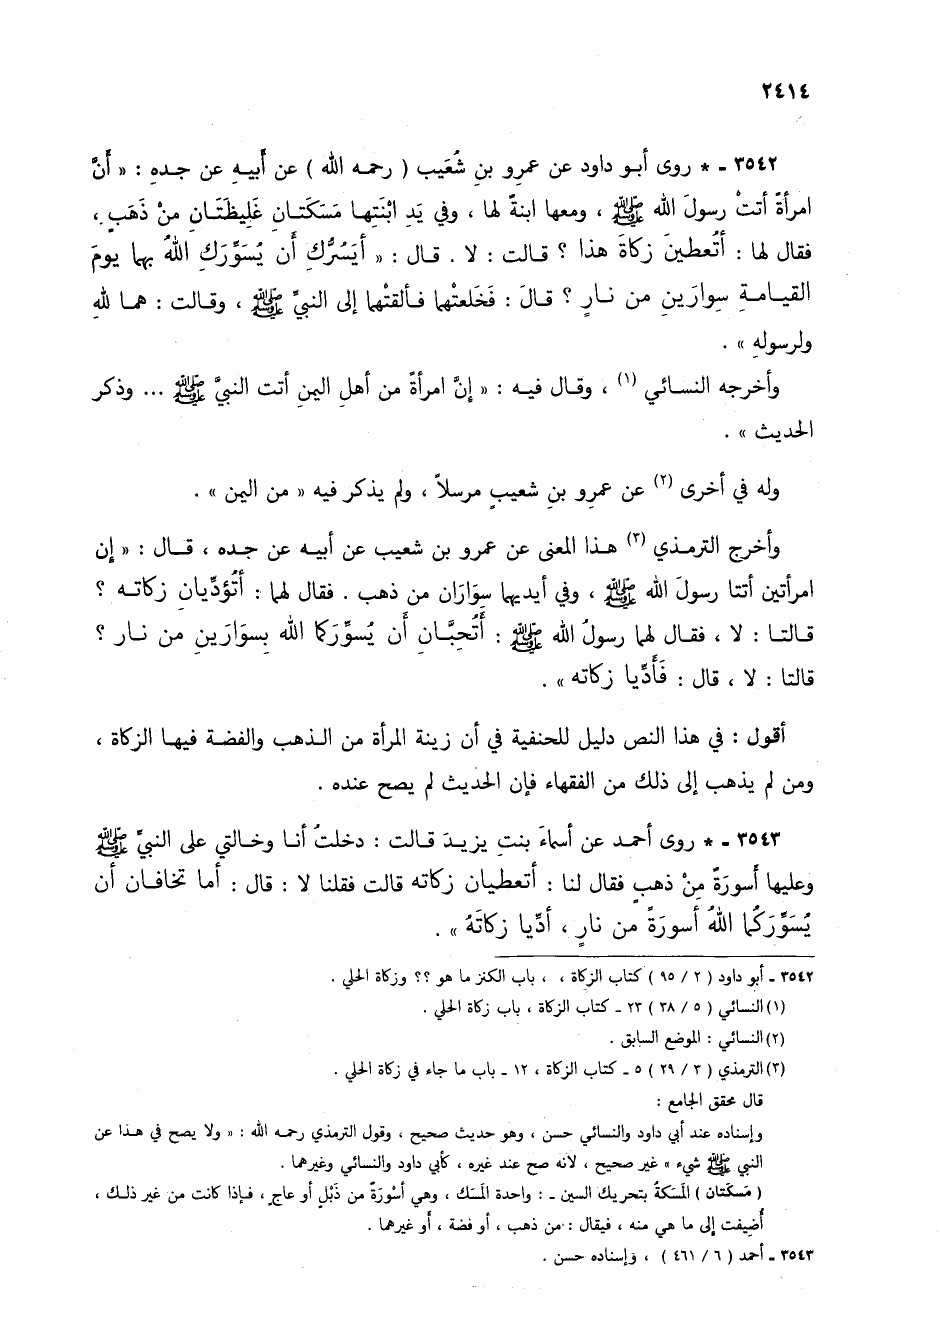 ٢٤١٤
٣٥٤٢ ـ * روى أبو داود عن عمرو بنِ شُعَيب ( رحمه الله ) عن أَبيهِ عن جدهِ : « أَنَّ
امرأةً أتتْ رسولَ الله ﷺ ، ومعها ابنةٌ لها ، وفي يَدِ ابْنَتِها مَسَكَتانِ غَلِيظَتَانِ مِنْ ذَهَبٍ ،
فقال لها : أَتُعطينَ زكاةَ هذا ؟ قالت : لا . قال : « أَيَسُرُّكِ أَن يُسَوِّرَكِ اللهُ بهما يومَ
القيامةِ سِوارَينِ من نارٍ ؟ قالَ : فَخَلعتْهما فألقتْهما إلى النبيِّ ﷺ ، وقالت : هما للهِ
ولرسولهِ » .
وأخرجه النسائي (١) ، وقال فيه : « إنَّ امرأةً من أهلِ اليمنِ أتت النبيَّ ﷺ ... وذكر
الحديث » .
وله في أخرى (٢) عن عمرِو بنِ شعيبٍ مرسلاً ، ولم يذكر فيه « من اليمن » .
وأخرج الترمذي (٣) هذا المعنى عن عمرو بن شعيب عن أبيه عن جده ، قال : « إن
امرأتين أتتا رسولَ الله ﷺ ، وفي أيديهما سِوَارَان من ذهب . فقال لهما : أَتُؤَدِّيانِ زكاته ؟
قالتا : لا ، فقال لهما رسولُ الله ﷺ : أَتُحِبَّانِ أَن يُسوِّرَكما الله بِسوَارَينِ من نار ؟
قالتا : لا ، قال : فَأَدِّيا زكاته » .
أقول : في هذا النص دليل للحنفية في أن زينة المرأة من الذهب والفضة فيها الزكاة ،
ومن لم يذهب إلى ذلك من الفقهاء فإن الحديث لم يصح عنده .
٣٥٤٣ ـ * روى أحمد عن أسماءَ بنتِ يزيدَ قالت : دخلتُ أنا وخالتي على النبيِّ ﷺ
وعليها أَسورَةٌ مِنْ ذهبٍ فقال لنا : أتعطيان زكاته قالت فقلنا لا : قال : أما تخافان أن
يُسَوِّرَكُما اللهُ أسورَةً من نارٍ ، أدِّيا زكاتَهُ » .
٣٥٤٢ ـ أبو داود ( ٢ / ٩٥ ) كتاب الزكاة ، ، باب الكنز ما هو ؟؟ وزكاة الحلي .
(١) النسائي ( ٥ / ٣٨ ) ٢٣ ـ كتاب الزكاة ، باب زكاة الحلي .
(٢) النسائي : الموضع السابق .
(٣) الترمذي ( ٣ / ٢٩ ) ٥ ـ كتاب الزكاة ، ١٢ ـ باب ما جاء في زكاة الحلي .
قال محقق الجامع :
وإسناده عند أبي داود والنسائي حسن ، وهو حديث صحيح ، وقول الترمذي رحمه الله : « ولا يصح في هذا عن
النبي ﷺ شيء » غير صحيح ، لأنه صح عند غيره ، كأبي داود والنسائي وغيرهما .
( مَسَكَتان ) المَسَكةُ بتحريك السين ـ : واحدة المَسَك ، وهي أَسْوِرَةٌ من ذَبْلٍ أو عاجٍ ، فإذا كانت من غير ذلك ،
أُضيفت إلى ما هي منه ، فيقال : من ذهب ، أو فضة ، أو غيرهما .
٣٥٤٣ ـ أحمد ( ٦ / ٤٦١ ) ، وإسناده حسن .